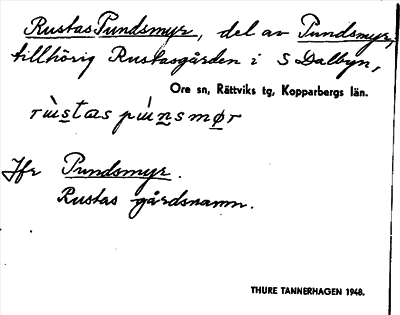 Rustas Pundsmyr, del av Pundsmyr,
tillhörig Rustasgården i S Dalbyn,
Ore sn, Rättviks tg, Kopparbergs län.
rùstas pùnsmør
Jfr Pundsmyr.
Rustas gårdsnamn.
THURE TANNERHAGEN 1948.